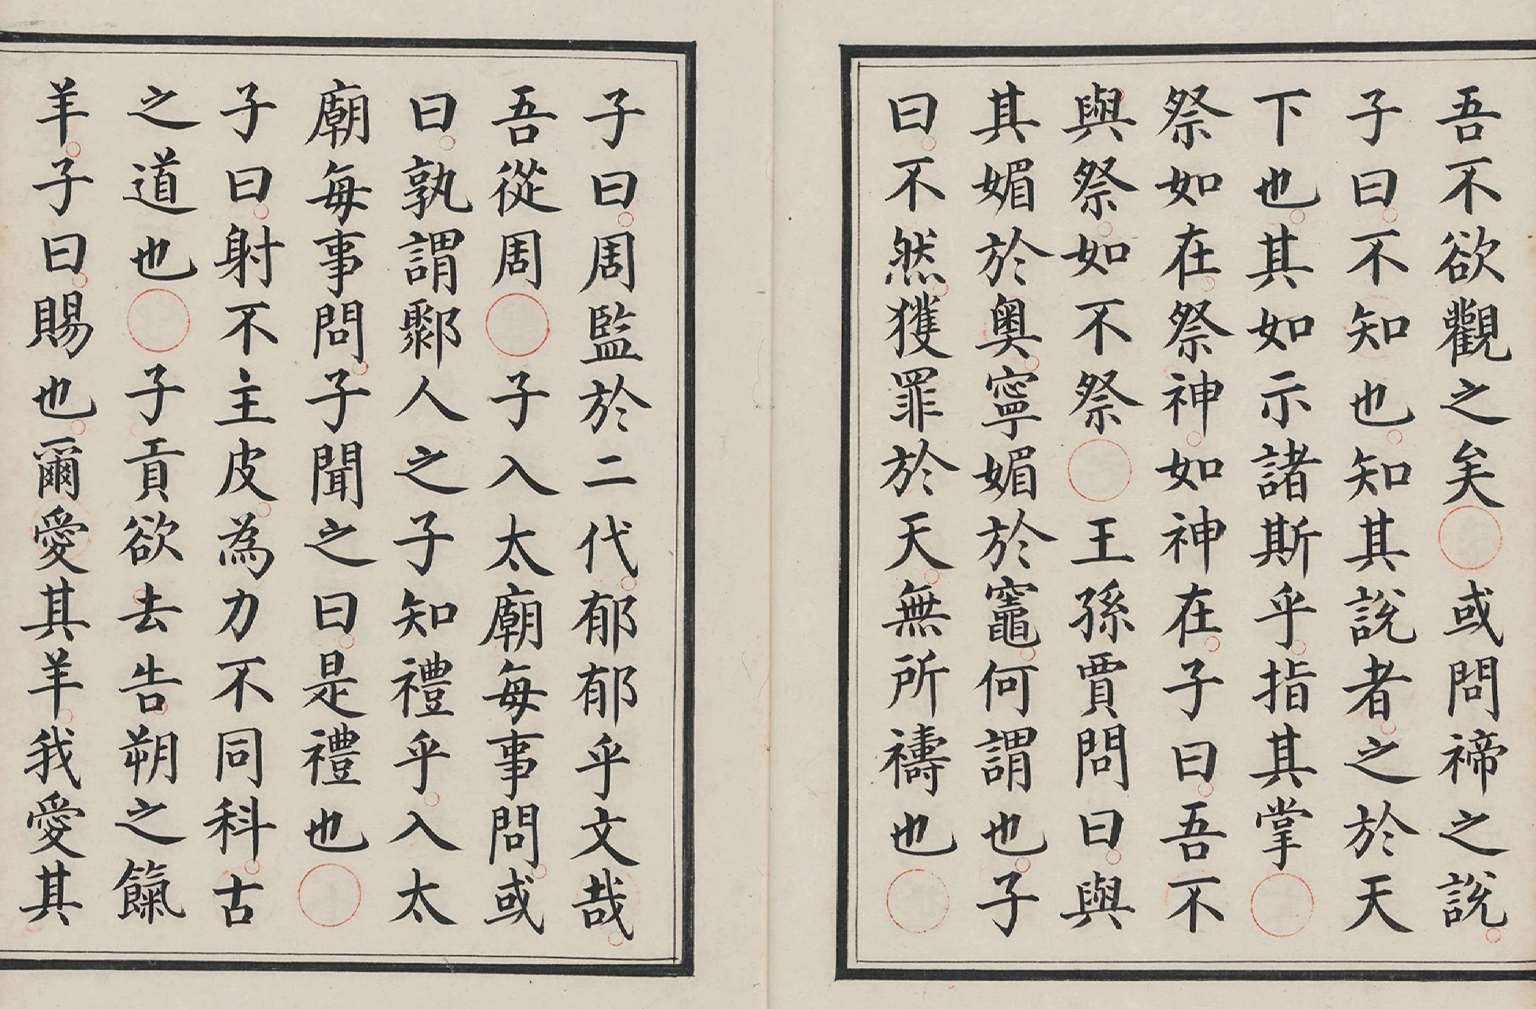 吾不欲觀之矣○或問禘之說
子曰不知也知其說者之於天
下也其如示諸斯乎指其掌○
祭如在祭神如神在子曰吾不
與祭如不祭○王孫賈問曰與
其媚於奧寧媚於竈何謂也子
曰不然獲罪於天無所禱也○
子曰周監於二代郁郁乎文哉
吾從周○子入太廟每事問或
曰孰謂鄹人之子知禮乎入太
廟每事問子聞之曰是禮也○
子曰射不主皮為力不同科古
之道也○子貢欲去告朔之餼
羊子曰賜也爾愛其羊我愛其